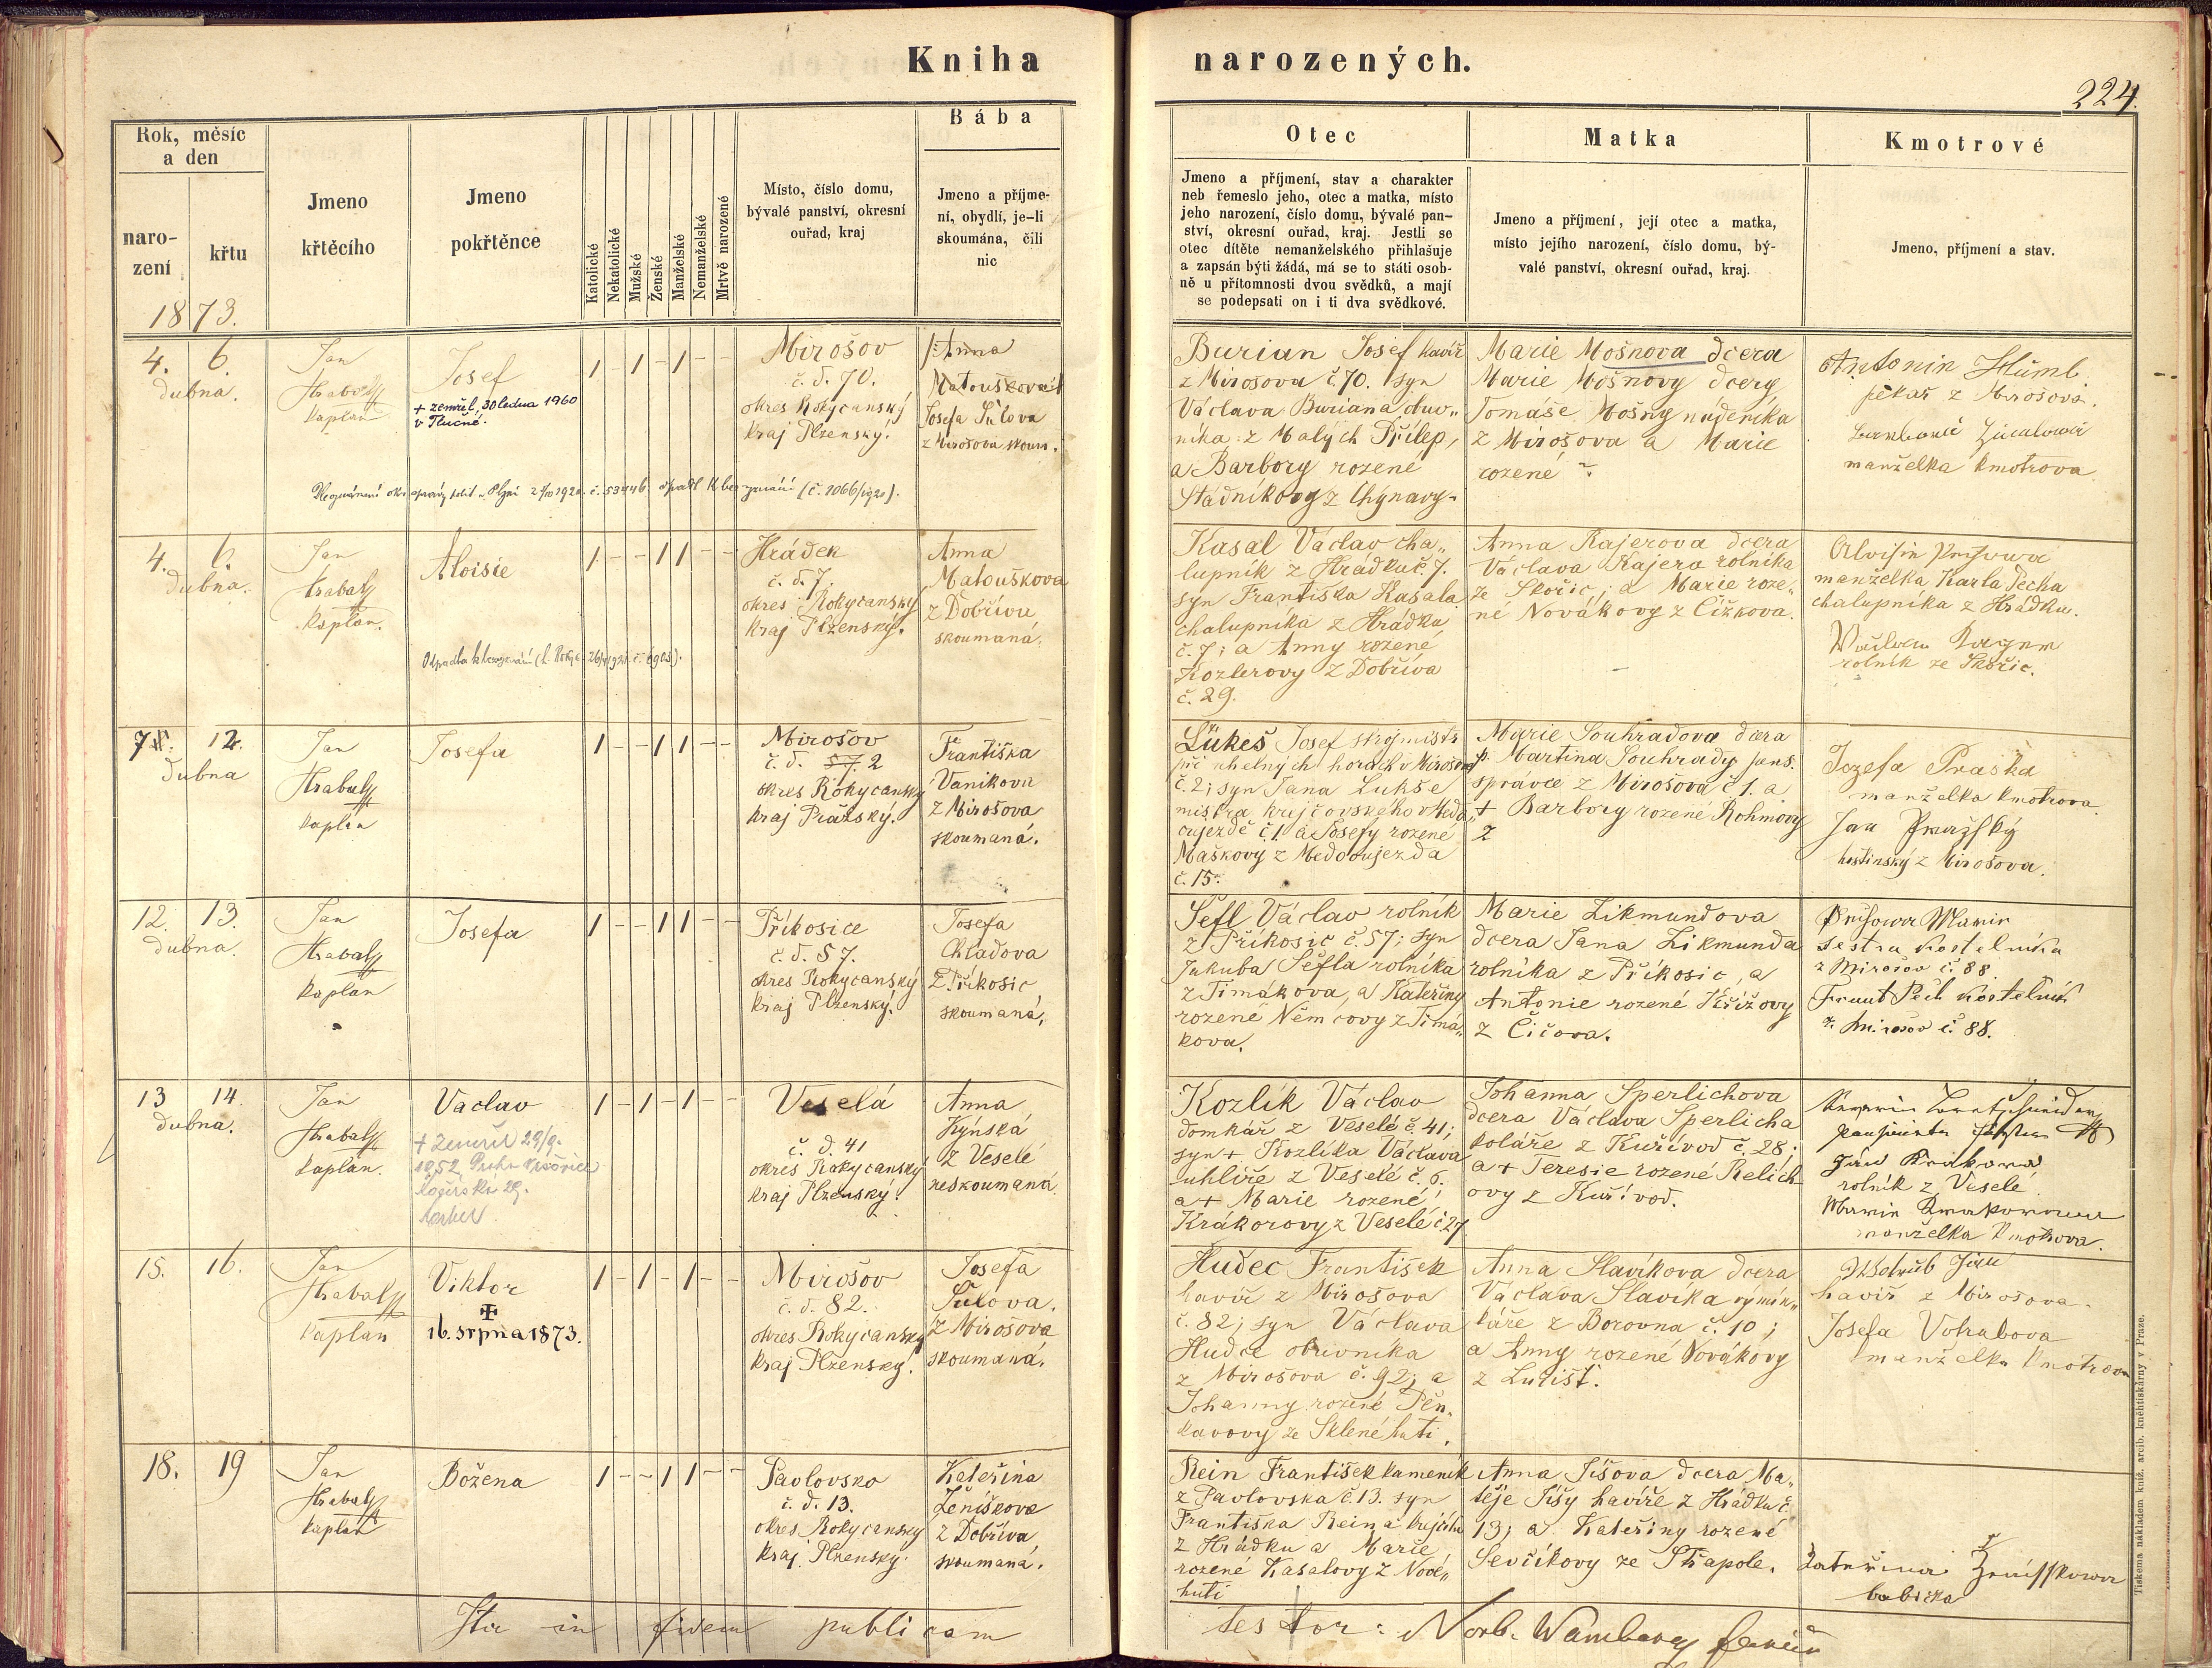 Kniha narozených.
224.
Rok, měsíc
a den
naro-
zení
křtu
1873.
Jmeno
křtěcího
Jmeno
pokřtěnce
Katolické
Nekatolické
Mužské
Ženské
Manželské
Nemanželské
Mrtvě narozené
Místo, číslo domu,
bývalé panství, okresní
ouřad, kraj
Bába
Jmeno a příjme-
ní, obydlí, je-li
skoumána, čili
nic
Otec
Jmeno a příjmení, stav a charakter
neb řemeslo jeho, otec a matka, místo
jeho narození, číslo domu, bývalé pan-
ství, okresní ouřad, kraj. Jestli se
otec dítěte nemanželského přihlašuje
a zapsán býti žádá, má se to státi osob-
ně u přítomnosti dvou svědků, a mají
se podepsati on i ti dva svědkové.
Matka
Jmeno a příjmení, její otec a matka,
místo jejího narození, číslo domu, bý-
valé panství, okresní ouřad, kraj.
Kmotrové
Jmeno, příjmení a stav.
4. 6.
dubna.
Jan
Hrabal
kaplan
Josef
+ zemřel, 30 ledna 1960
v Tlučné.
1 - 1 - 1 - -
Mirošov
č. d. 70.
okres Rokycanský
kraj Plzenský.
Anna
Matoušková
Josefa Šůlova
z Mirošova skoum.
Burian Josef havíř
z Mirošova č. 70. syn
Václava Buriana duv„
níka z Malých Přílep,
a Barbory rozené
Stádníkovy z Chýnavy.
Marie Mošnova dcera
Marie Mošnovy dcery
Tomáše Mošny nádeníka
z Mirošova a Marie
rozené
Antonin
pekař z Mirošova.
manželka kmotrova
4. 6.
dubna.
Jan
Hrabal
kaplan.
Aloisie
1 - - 1 1 - -
Hrádek
č. d. 7.
okres Rokycanský
kraj Plzenský.
Anna
Matouškova
z Dobřívu
skoumaná.
Kasal Václav cha„
lupník z Hrádku č. 7.
syn Františka Kasala
chalupníka z Hrádku
č. 7; a Anny rozené
Kozlerovy z Dobříva
č. 29.
Anna Rajerova dcera
Václava Rajera rolníka
ze Skořic; a Marie roze„
né Novákovy z Čížkova.
manželka Karla Pecha
chalupníka z Hrádku.
rolník ze Skořic.
7. 12.
dubna
Jan
Hrabal
kaplán
Josefa
1 - - 1 1 - -
Mirošov
č. d. 57. 2
okres Rokycanský
kraj Pražský.
Františka
Vanikova
z Mirošova
skoumaná.
Lukeš Josef strojmistr
při uhelných horách v Mirošově
č. 2; syn Jana Lukše
mistra krejčovského v Medo„
oujezdě č. 1 a Josefy rozené
Maškovy z Medooujezda
č. 15.
Marie Souhradova dcera
p. Martina Souhrady pens.
správce z Mirošova č 1. a
+ Barbory rozené Rohmovy
z
Jozefa Praska
manželka kmotrova
Jan Pražský
hostinský z Mirošova.
12. 13.
dubna.
Jan
Hrabal
kaplan
Josefa
1 - - 1 1 - -
Příkosice
č. d. 57.
okres Rokycanský
kraj Plzenský.
Josefa
Chladova
z Příkosic
skoumaná.
Šefl Václav rolník
z Příkosic č. 57; syn
Jakuba Šefla rolníka
z Timákova, a Kateřiny
rozené Němcovy z Timá„
kova.
Marie Zikmundova
dcera Jana Zikmunda
rolníka z Příkosic, a
Antonie rozené Křížovy
z Čičova.
sestra kostelníka
z Mirošov č. 88.
Frant Pech kostelník
z Mirošov č. 88.
13 14.
dubna.
Jan
Hrabal
kaplán.
Vaclav
+ Zemřel 29/9.
1952
1 - 1 - 1 - -
Veselá
č. d. 41
okres Rokycanský
kraj Plzenský.
Anna
Kýnská
z Veselé
neskoumaná
Kozlík Václav
domkář z Veselé č. 41;
syn + Kozlíka Václava
uhlíře z Veselé č. 6.
a + Marie rozené
Krákorovy z Veselé č. 27
Johanna Sperlichova
dcera Václava Sperlicha
koláře z Kuřívod č. 28;
a + Teresie rozené Relich-
ovy z Kuřívod.
rolník z Veselé
manželka kmotrova.
15. 16.
Jan
Hrabal
kaplan
Viktor
✠
16. srpna 1873.
1 - 1 - 1 - -
Mirošov
č. d. 82.
okres Rokycanský
kraj Plzenský.
Josefa
Šulova.
z Mirošova
skoumaná.
Hudec František
havíř z Mirošova
č. 82; syn Václava
Hudce obuvníka
z Mirošova č. 92; a
Johanny rozené Pěn„
kavovy ze Sklené huti.
Anna Slavíkova dcera
Václava Slavíka výmin„
káře z Borovna č. 10;
a Anny rozené Novákovy
z Lučišť.
havíř z Mirošova.
Josefa Votrubova
manželka kmotrova
18. 19
Jan
Hrabal
kaplán
Božena
1 - - 1 1 - -
Pavlovsko
č. d. 13.
okres Rokycanský
kraj Plzenský.
Kateřina
Ženíškova
z Dobříva
skoumaná.
Rein František kameník
z Pavlovska č. 13. syn
Františka Reina krejčího
z Hrádku a Marie
rozené Kasalovy z Nové„
huti
Anna Jíšova dcera Ma„
těje Jíšy havíře z Hrádku č.
13; a Kateřiny rozené
Sevčíkovy ze Štapole.
babička
Ita in fidem publicam
testor: Norb. Wamberg
Tiskem a nákladem kníž. arcib. kněhtiskárny v Praze.